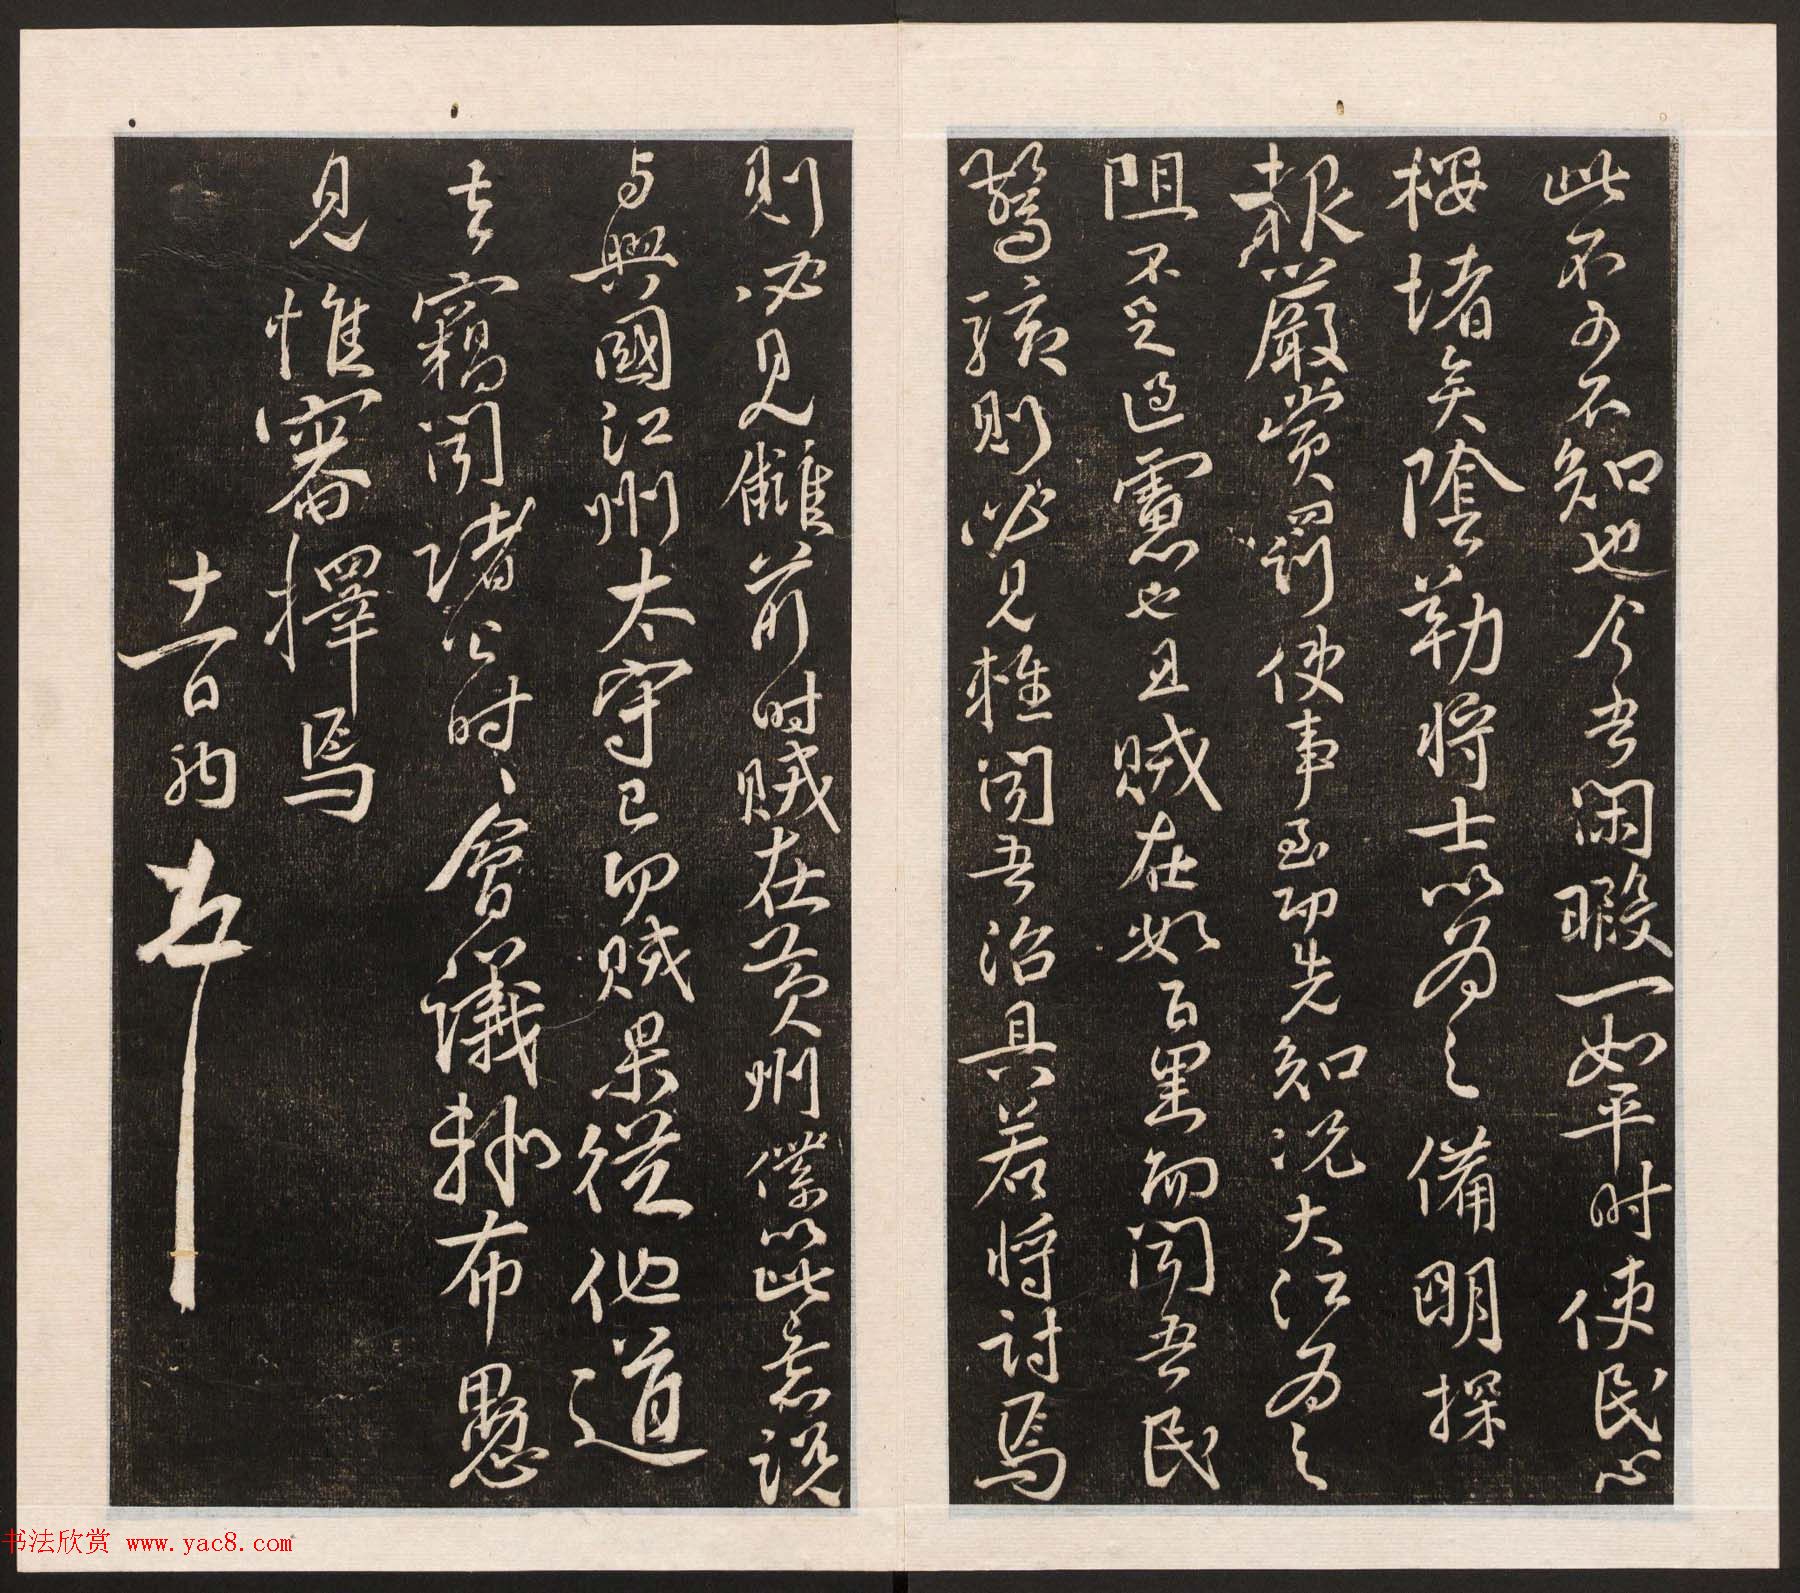 此不可不知也今者閑暇一如平时使民心
按堵矣陰勒将士以为之備明探
報嚴賞罰使事至即先知况大江为之
阻不足過慮也且賊在数百里勿聞吾民
驚擾则必見輕聞吾治具若将討焉
则必見讎前时賊在黄州僕以此意説
与興國江州太守已而賊果從他道
去竊聞诸公时、會議輒布愚
見惟審擇焉
十一日
书法欣赏 www.yac8.com